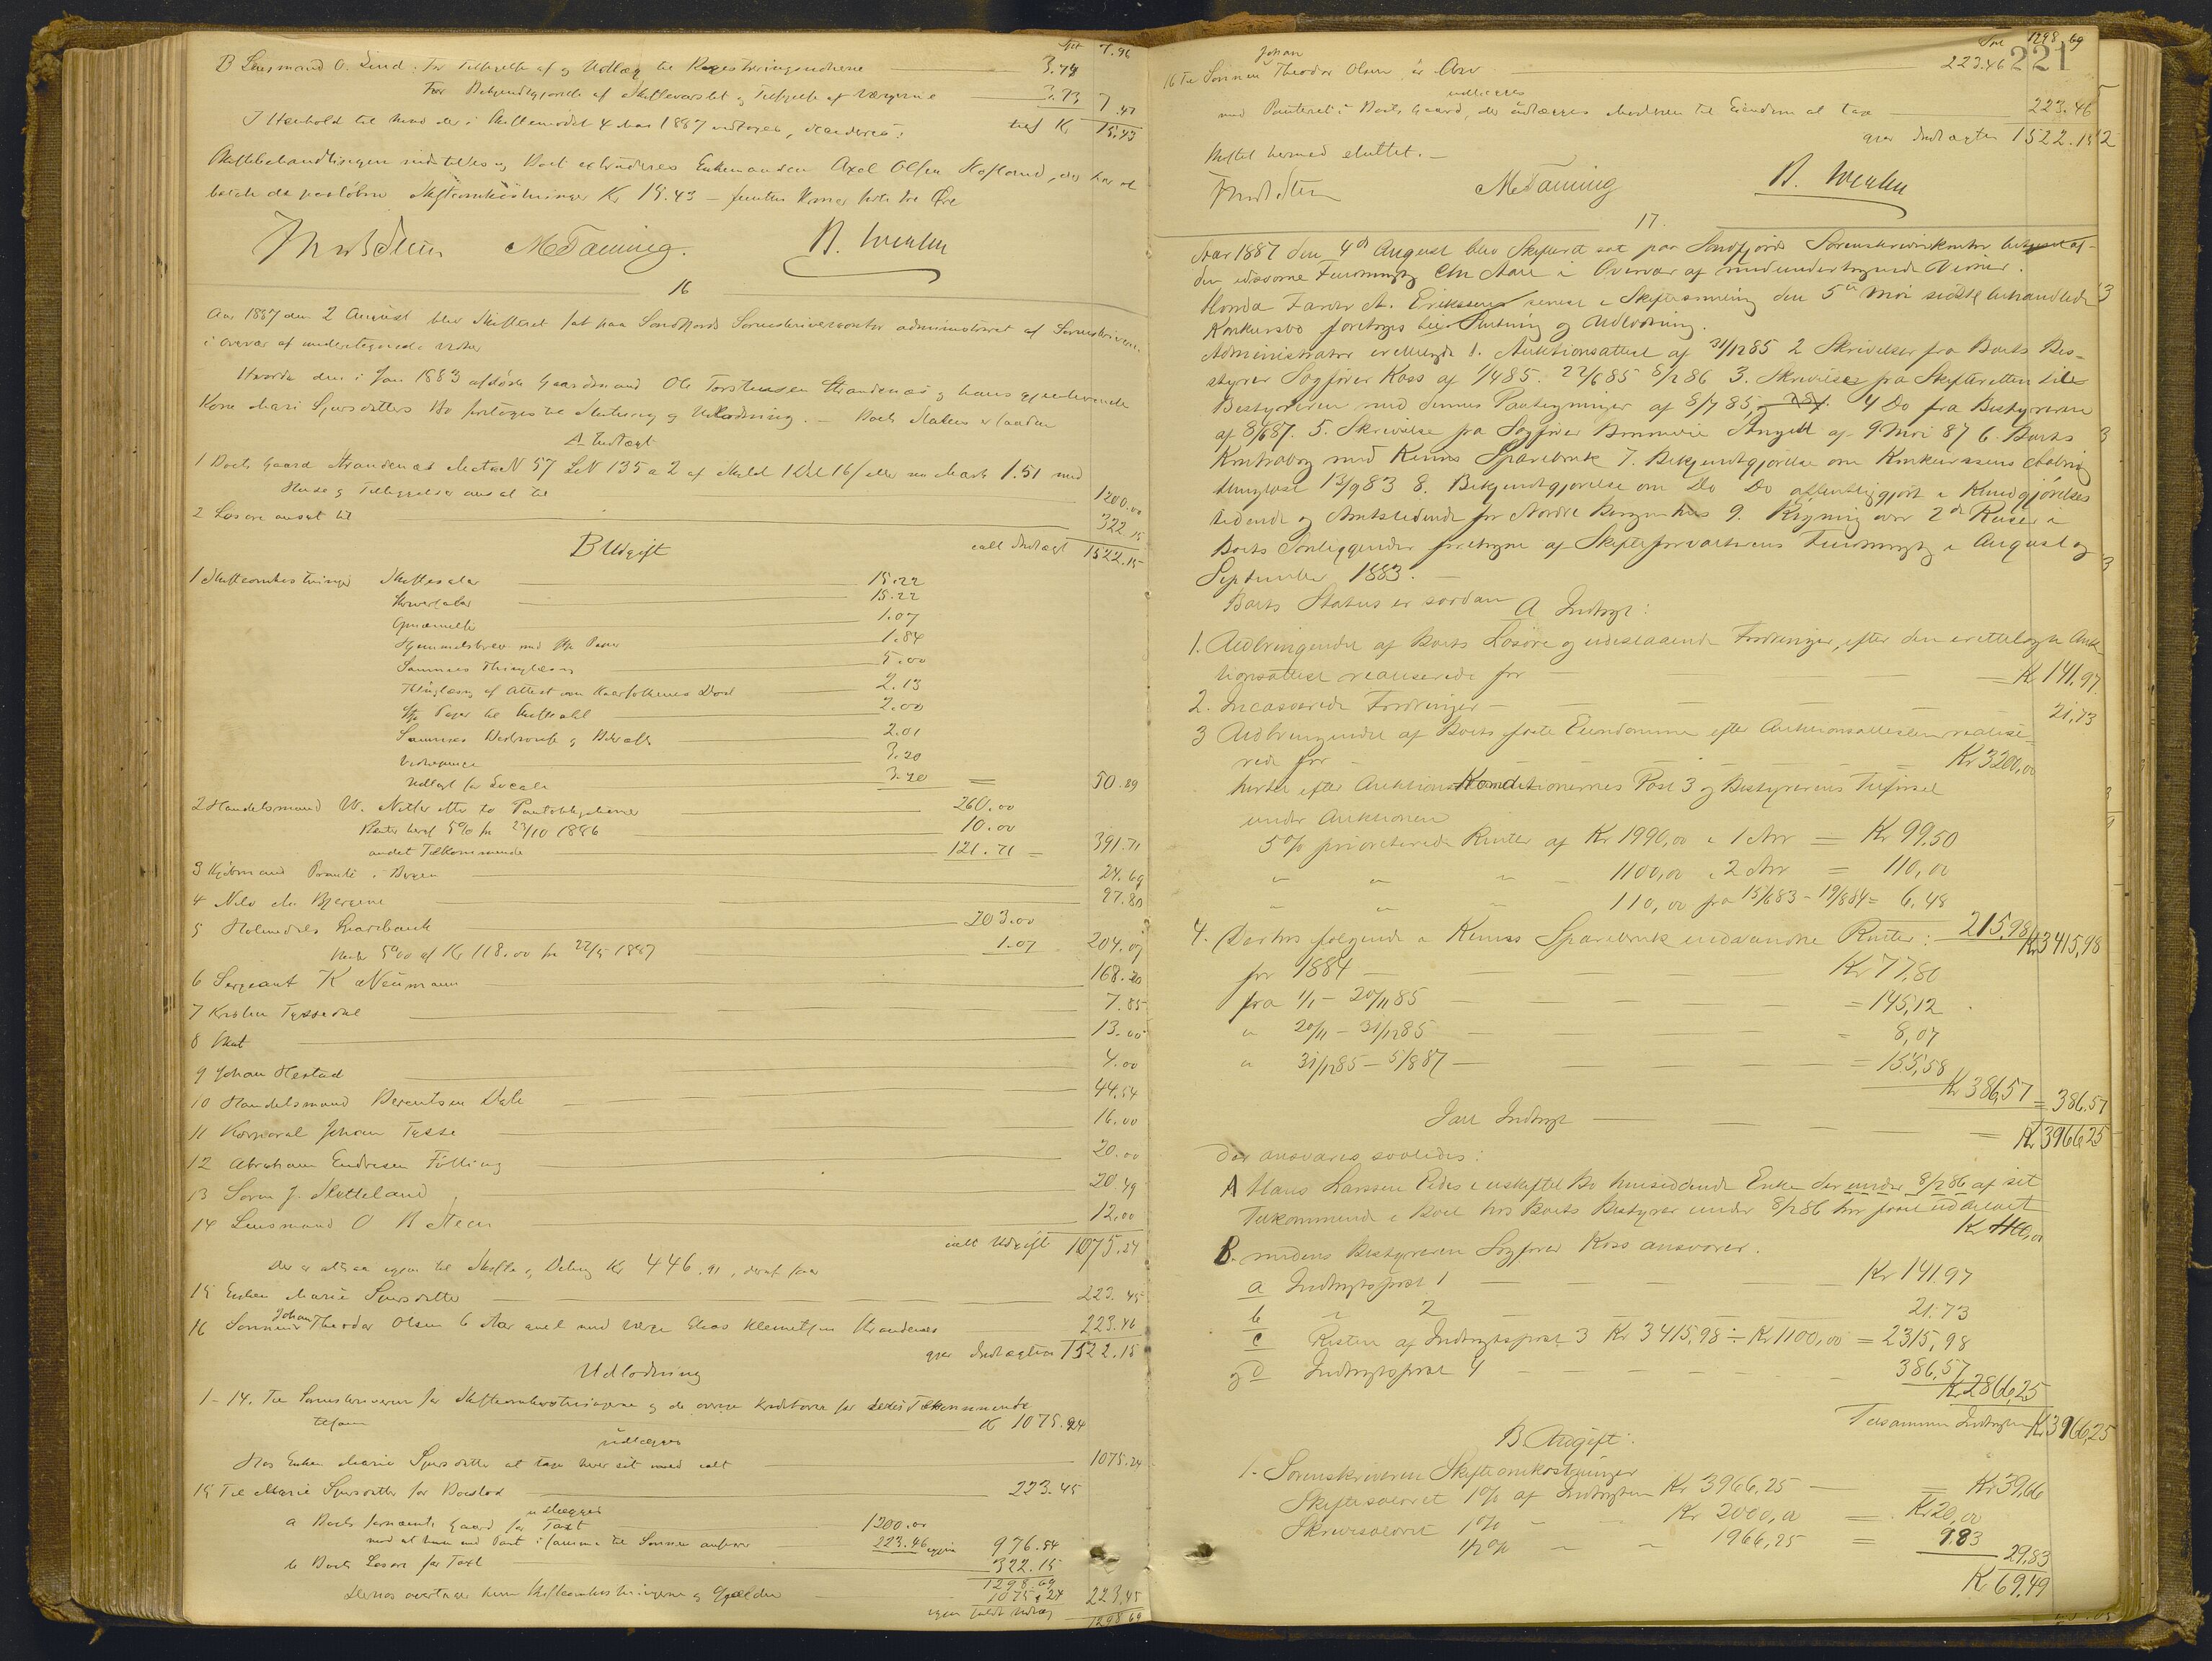 Npt 7.96
B Lensmand O. Lind: For Tilhjelp af og Udlæg til Registreringsmændene 3.74
For Bekjendtgjørelse af Skiftevarslet og Tilsigelse af Værgerne 3.73 7.47
I Henhold til hvad der i Skiftemødet 4 Mai 1887 vedtoges, decideres: tils Kr 15.43
Skiftebehandlingen indstilles og Boet extraderes Enkemanden Axel Olsen Hofland, der har at
betale de paaløbne Skifteomkostninger Kr 15.43 – femten Kroner førti tre Øre
M Taning. N. Wenlu
16
Aar 1887 den 2 August blev Skifteret sat paa Søndfjords Sorenskrivercontor administreret af Sorenskriveren
i Overvær af undertegnede Vidner
Hvorda den i Jan 1883 afdøde Gaardmand Ole Torstensen Strandenæs og hans gjenlevende
Kone Mari Sjursdatters Bo foretoges til Slutning og Udlodning. – Boets Status er saadan
A. Indtægt
1 Boets Gaard Strandenæs Matr N 57 LN 135 a 2 af Skyld 1 16 eller ny Mark 1.51 med
Huse og Tilliggelser ansat til 1200.00
2 Løsøre ansat til 322.15
ialt Indtægt 1522.15
B Udgift
1 Skifteomkostninger Skiftesalær 15.22
Skriversalær 15.22
1.07
Hjemmelsbrev med stp Papir 1.84
Sammes Thinglæsn 5.00
Thinglæsn af Attest om Kaarfolkenes Død 2.13
Stp Papir til Skifteakt 2.00
Sammes Beskrivelse og Bekræft 2.01
Vidnepenge 3.20
Udlagt for Locale 3.20 = 50.89
2 Handelsmand W. Nitter efter to Pantobligationer 260.00
Renter heraf 5% fra 23/10 1886 10.00
andet Tilkommende 121.71 = 391.71
3 Kjøbmand i Bergen 24.69
4 Nils 97.80
5 Holmedals Sparebank 203.00
Rente 5% af Kr 118.00 fra 22/5 1887 1.07 204.07
6 Sergeant K Neumann 168.20
7 Kristen Tyssedal 7.85
8 Skat 13.00
9 Johan Hestad 4.00
10 Handelsmand Berentsen Dale 44.54
11 Korporal Johan Tysse 16.00
12 Abraham Endresen Følling 20.00
13 Søren J. Sletteland 20.49
14 Lensmand O 12.00
ialt Udgift 1075.24
Der er altsaa igjen til Skifte og Deling Kr 446.91, deraf faar
15 Enken Marie Sjursdatter 223.45
16 Sønnen Johan Theodor Olsen 6 Aar gml med Værge Elias Klemetsen Strandenæs 223.46
gjør Indtægten 1522.15
Udlodning
1–14. Til Sorenskriveren for Skifteomkostningerne og de øvrige Kreditorer for deres Tilkommende
tilsam Kr 1075.24
udlægges
Hos Enken Marie Sjursdatter at tage hver sit med ialt 1075.24
15 Til Marie Sjursdatter for Boeslod 223.45
udlægges
a Boets fornævnte Gaard for Taxt 1200.00
mod at hun med Pant i samme til Sønnen ansvar 223.46 igjen 976.54
b Boets Løsøre for Taxt 322.15
1298.69
Derhos overtager hun Skifteomkostningerne og Gjælden 1075.24 223.45
igjen fuldt Udlæg 1298.69
Tre 1298.69
221
16 Til Sønnen Johan Theodor Olsen for Arv 223.46
udlægges
med Panteret i Boets Gaard, der udlægges Moderen til Eiendom at tage 223.46
gjør Indtægten 1522.15
Skiftet hermed sluttet. –
M Taning N. Wenlu
17.
Aar 1887 den 4de August blev Skifteret sat paa Søndfjords Sorenskriverkontor betjent af
den edsvorne Fuldmægtig Chr Aall i Overvær af medundertegnede Vidner.
Hvorda Farver A. Eriksens senest i Skiftesamling den 5te Mai sidstl behandlede
Konkursbo foretoges til Slutning og Udlodning.
Administrator erettelagde 1. Auktionsattest af 31/12 85 2 Skrivelser fra Boets Bes-
styrer Sagfører Koss af 1/4 85. 22/6 85 8/2 86 3. Skrivelse fra Skifteretten til
Bestyreren med dennes Paategninger af 8/7 85, 4 Do fra Bestyreren
af 8/6 87. 5. Skrivelse fra Sagfører Angell af 9 Mai 87 6. Boets
Kontrabog med Kinns Sparebank 7. Bekjendtgjørelse om Konkursens Aabning
thinglæst 13/9 83 8. Bekjendtgjørelse om Do Do offentliggjort i Kundgjørelses
tidende og Amtstidende for Nordre Bergenhus 9. Regning over 2de Reiser i
Boets Anliggender foretagne af Skifteforvalterens Fuldmægtig i August og
September 1883. –
Boets Status er saadan
A Indtægt:
1. Udbringendet af Boets Løsøre og udestaaende Fordringer, efter den erettelagte Auk
tionsattest realiserede for – Kr 141.97
2. Incasserede Fordringer – 21.73
3 Udbringendet af Boets faste Eiendomme efter Auktionsattesten realise-
rede for – Kr 3200,00
hertil efter Auktions Konditionernes Post 3 og Bestyrerens Tilførsel
under Auktionen
5% prioriterede Renter af Kr 1990,00 i 1 Aar = Kr 99,50
" " " 1100,00 i 2 Aar = 110,00
" " " 110,00 fra 15/6 83 – 19/8 84 = 6.48
215,98 Kr 3415,98
4. Derhos følgende i Kinns Sparebank indvundne Renter:
for 1884 – Kr 77,80
fra 1/1 – 20/11 85 = 145,12
" 20/11 – 31/12 85 = 8,07
" 31/12 85 – 5/8 87 – = 155,58
Kr 386,57 = 386.57
Ialt Indtægt Kr 3966,25
der ansvares saaledes:
A Hans Larssen Eides i uskiftet Bo hensiddende Enke der under 8/2 86 af sit
Tilkommende i Boet hos Boets Bestyrer under 8/2 86 har faaet udbetalt
Kr 1100,00
B. medens Bestyreren Sagfører Koss ansvarer.
a Indtægtspost 1 – Kr 141.97
b " 2 21.73
c Resten af Indtægtspost 3 Kr 3415,98 ÷ Kr 1100,00 = 2315,98
og d Indtægtspost 4 – 386,57
Kr 2866,25
Tilsammen Indtægten Kr 3966,25
B Udgift:
1. Sorenskriveren Skifteomkostninger
Skiftesalæret 1% af Indtægten Kr 3966,25 = Kr 39,66
Skriversalæret 1% – Kr 2000,00 = Kr 20,00
1/2% – 1966,25 = 9.83
29,83
Kr 69,49